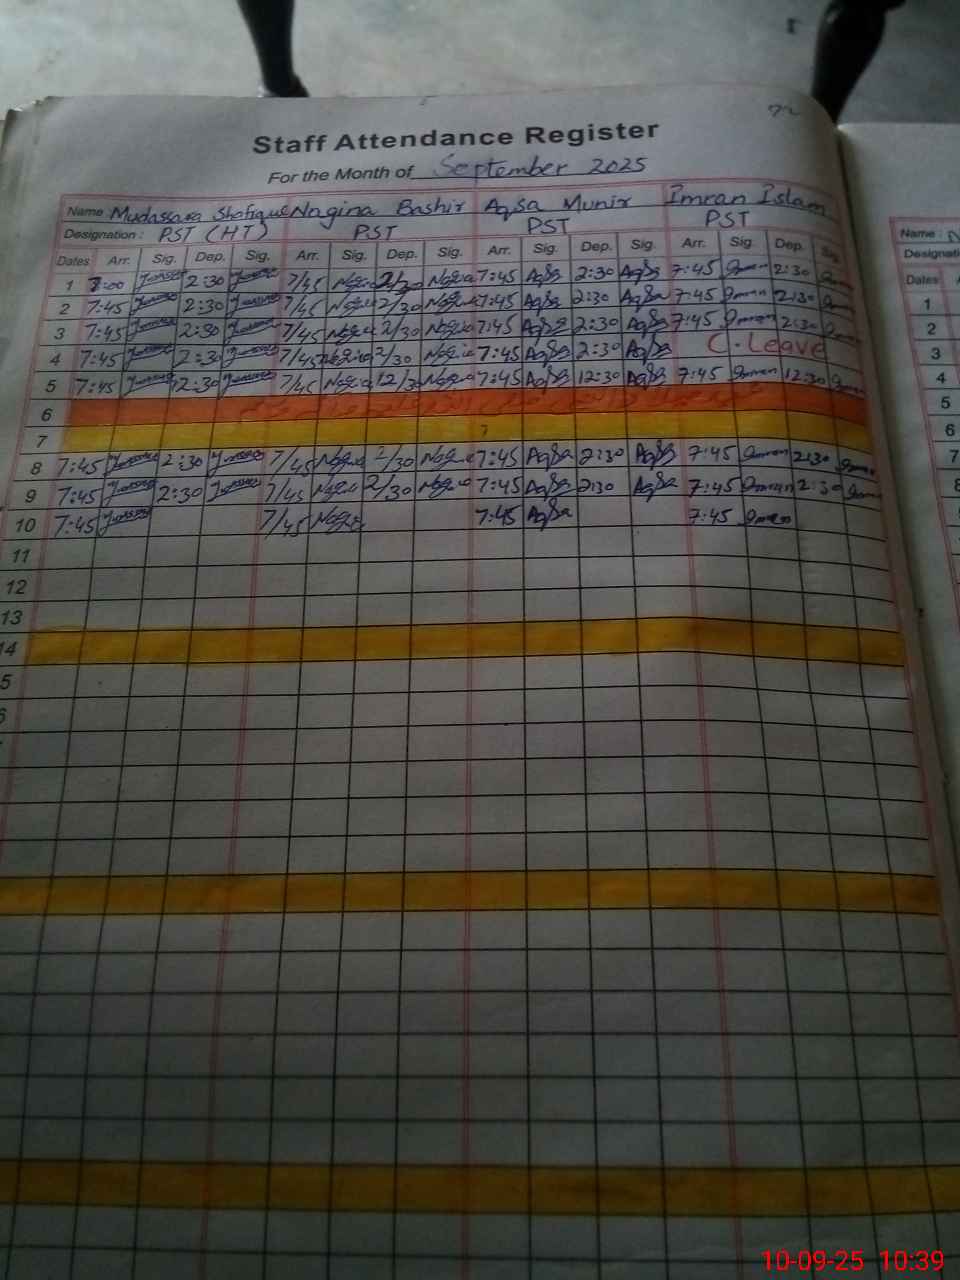 72
Staff Attendance Register
For the Month of September 2025
Name Mudassara Shafique Nagina Bashir Aqsa Munir Imran Islam
Designation : PST (HT) PST PST PST
Dates Arr. Sig. Dep. Sig. Arr. Sig. Dep. Sig. Arr. Sig. Dep. Sig. Arr. Sig. Dep. Sig
1 8:00 2:30 7/45 Nagina 2/30 Nagina 7:45 Aqsa 2:30 Aqsa 7:45 Imran 2:30
2 7:45 2:30 7/45 Nagina 2/30 Nagina 7:45 Aqsa 2:30 Aqsa 7:45 Imran 2:30
3 7:45 2:30 7/45 Nagina 2/30 Nagina 7:45 Aqsa 2:30 Aqsa 7:45 Imran 2:30
4 7:45 2:30 7/45 Nagina 2/30 Nagina 7:45 Aqsa 2:30 Aqsa C. Leave
5 7:45 12:30 7/45 Nagina 12/30 Nagina 7:45 Aqsa 12:30 Aqsa 7:45 Imran 12:30 Imran
6
7
8 7:45 2:30 7/45 Nagina 2/30 Nagina 7:45 Aqsa 2:30 Aqsa 7:45 Imran 2:30 Imran
9 7:45 2:30 7/45 Nagina 2/30 Nagina 7:45 Aqsa 2:30 Aqsa 7:45 Imran 2:30 Imran
10 7:45 7/45 Nagina 7:45 Aqsa 7:45 Imran
11
12
13
14
5
Name :
Designati
Dates
1
2
3
4
5
6
7
8
9
10-09-25 10:39